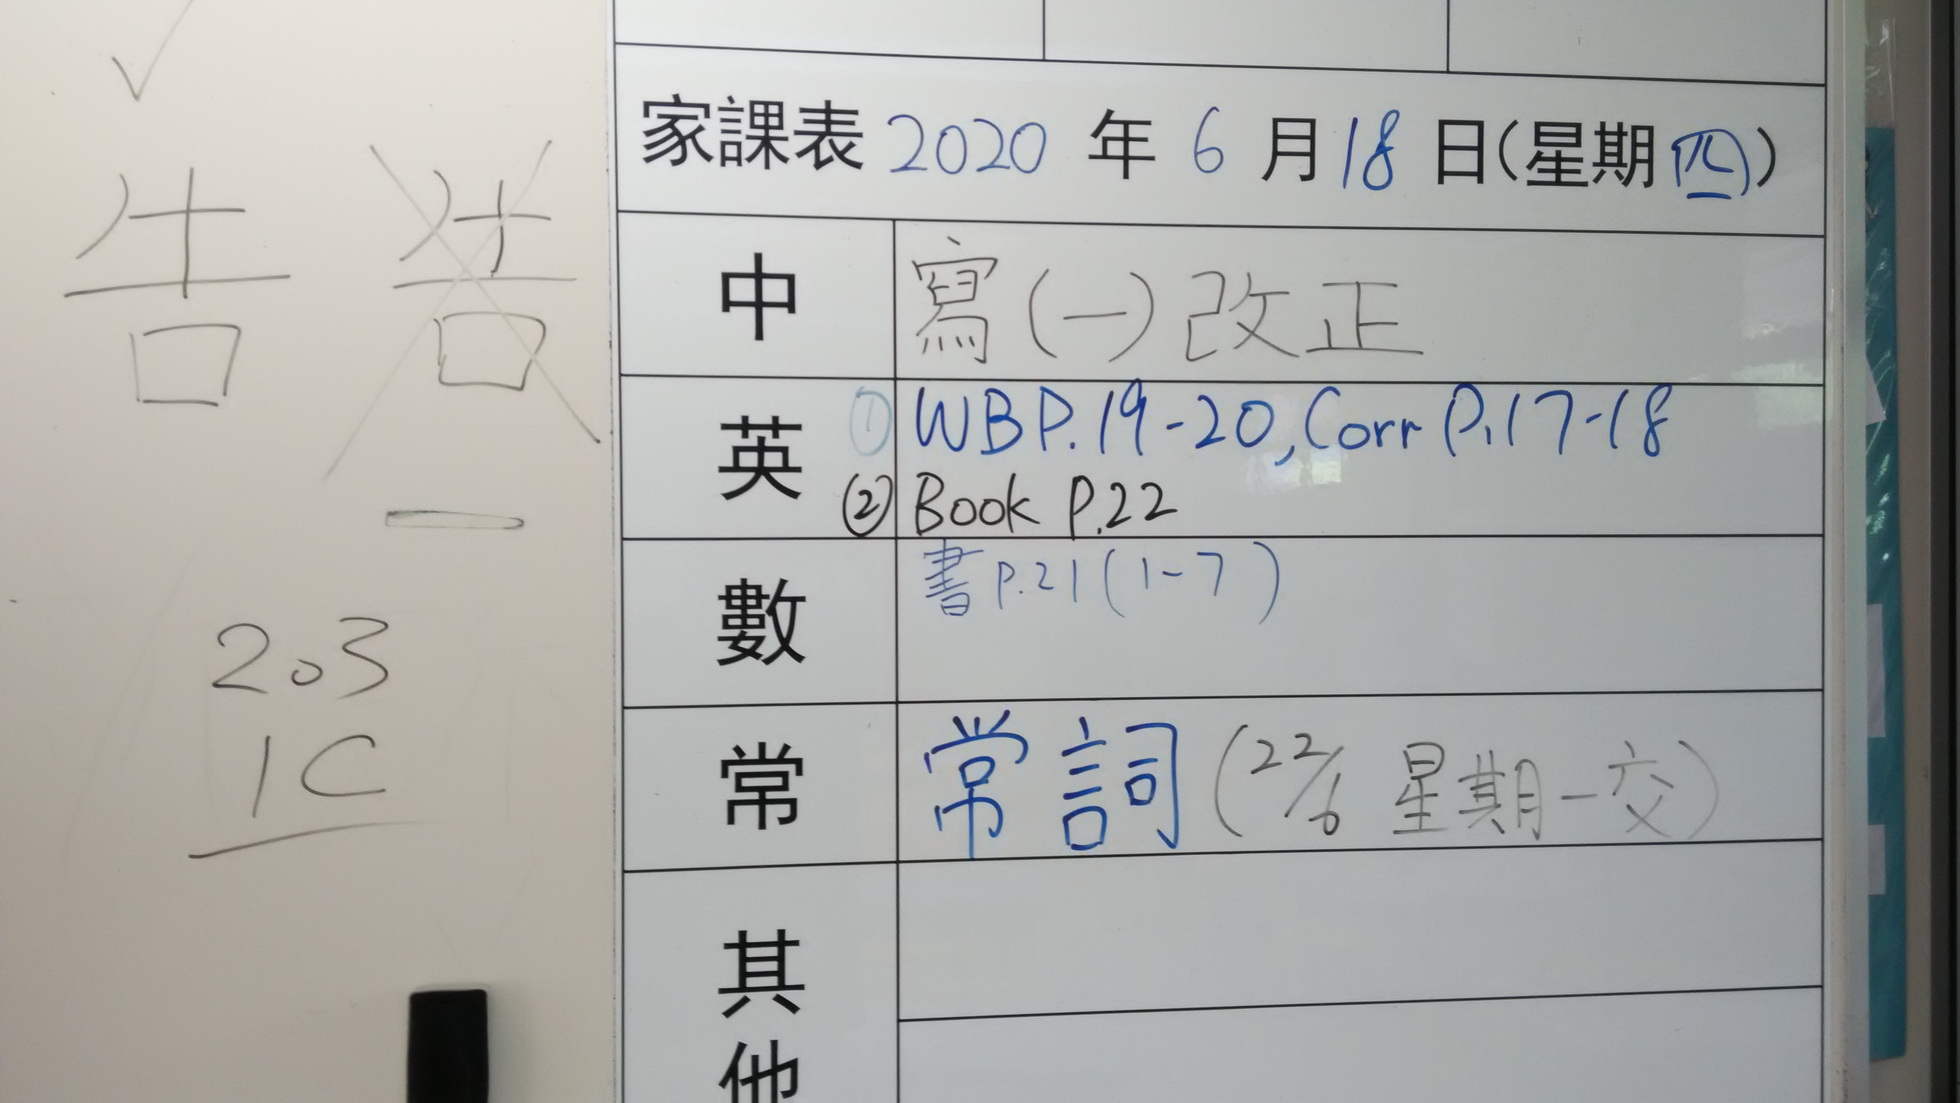 告 告
203
1C
家課表 2020 年 6 月 18 日(星期四)
中 寫(一)改正
英 ① WB P.19-20, Corr P.17-18
② Book P.22
數 書 P.21 (1-7)
常 常詞 (22/6 星期一交)
其他